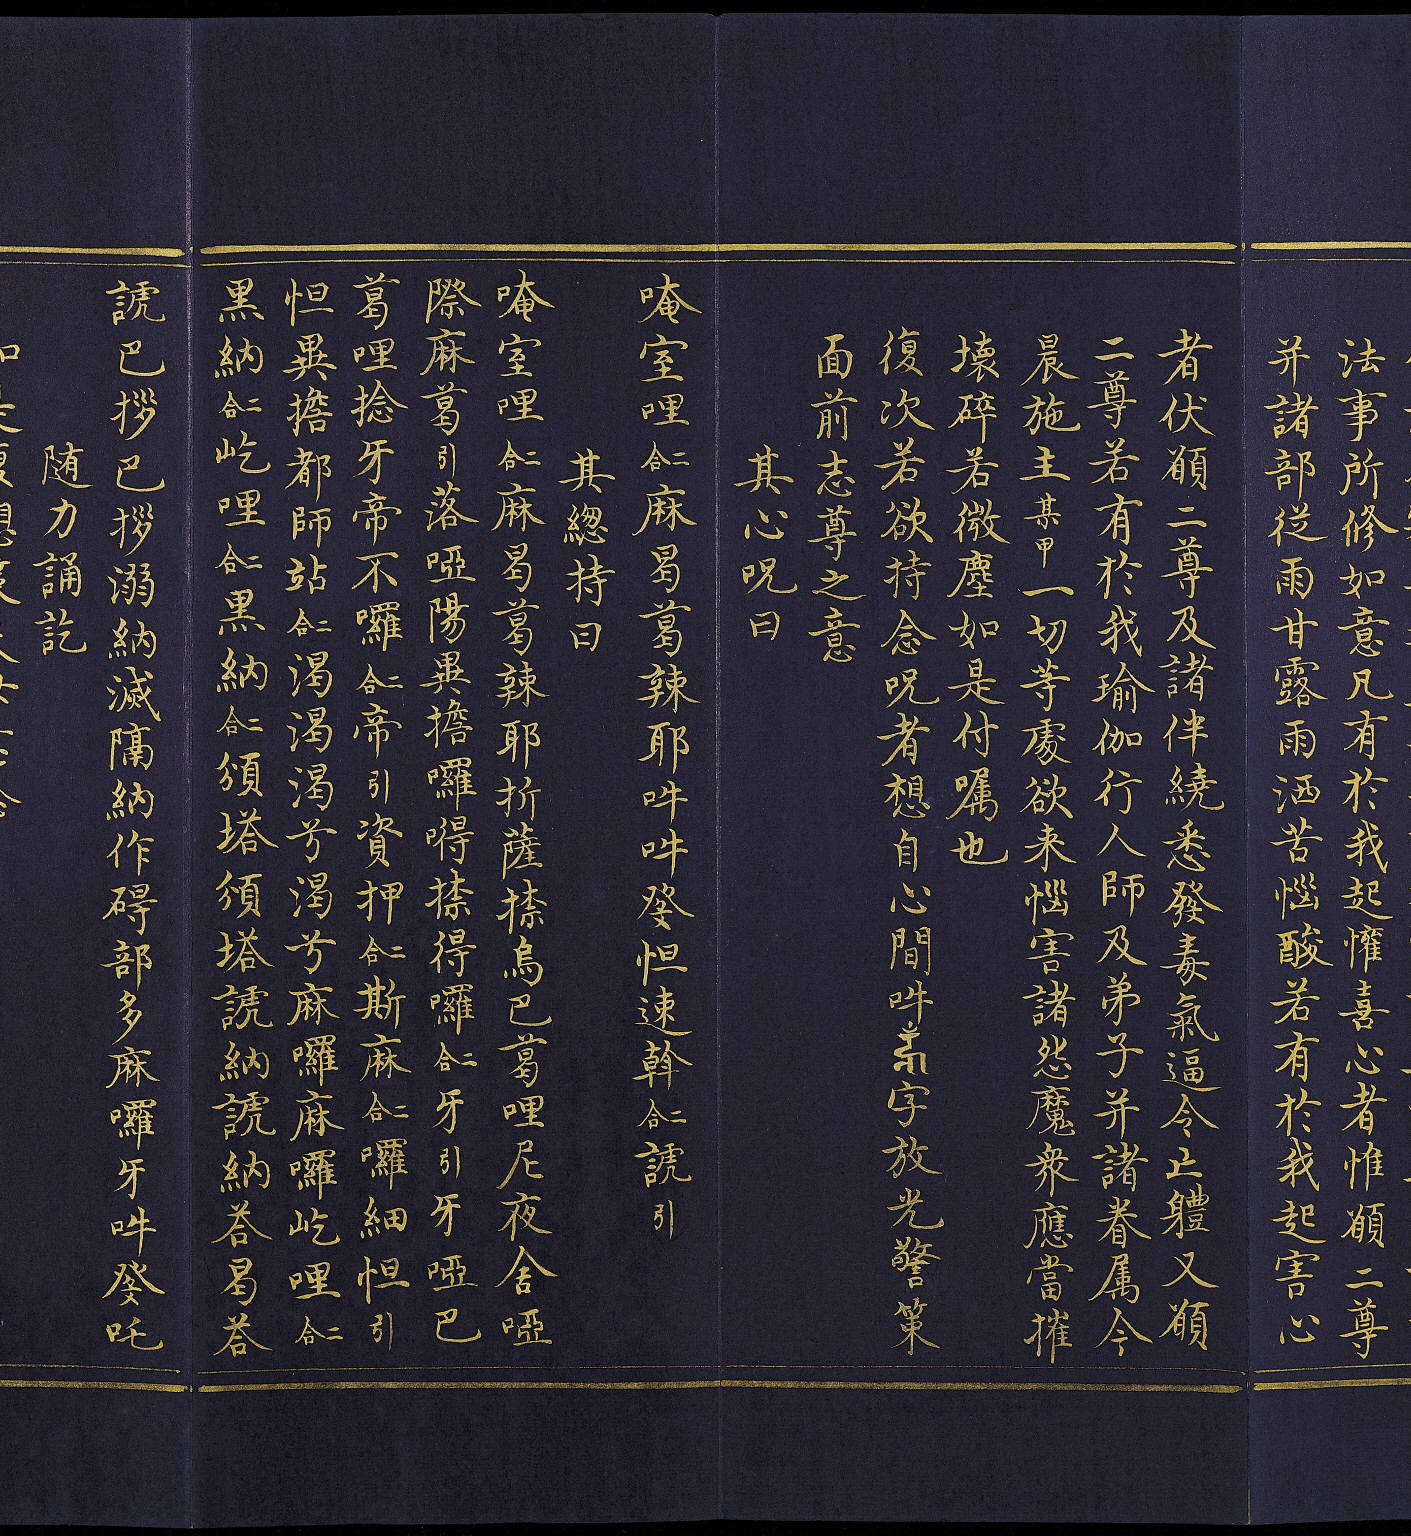 法事所修如意凡有於我起懽喜心者惟願二尊
并諸部從雨甘露雨洒苦惱酸若有於我起害心
者伏願二尊及諸伴繞悉發毒氣逼令止軆又願
二尊若有於我瑜伽行人師及弟子并諸眷属今
晨施主某甲一切等處欲来惱害諸惡魔衆應當摧
壞碎若微塵如是付嘱也
復次若欲持念呪者想自心間吽字放光警策
面前志尊之意
其心呪曰
唵室哩二合麻曷葛辣耶吽吽癹怛速斡二合謼引
其緫持曰
唵室哩二合麻曷葛辣耶折薩捺烏巴葛哩尼夜舍啞
際麻葛引落啞陽異擔囉㖵捺得囉二合牙引牙啞巴
葛哩捻牙帝不囉二合帝引資押二合斯麻二合囉細怛引
怛異擔都師站二合渴渴渴兮渴兮麻囉麻囉屹哩二合
黒納二合屹哩二合黒納二合頒塔頒塔謼納謼納荅曷荅
謼巴拶巴拶溺納滅隔納作碍部多麻囉牙吽癹吒
随力誦訖